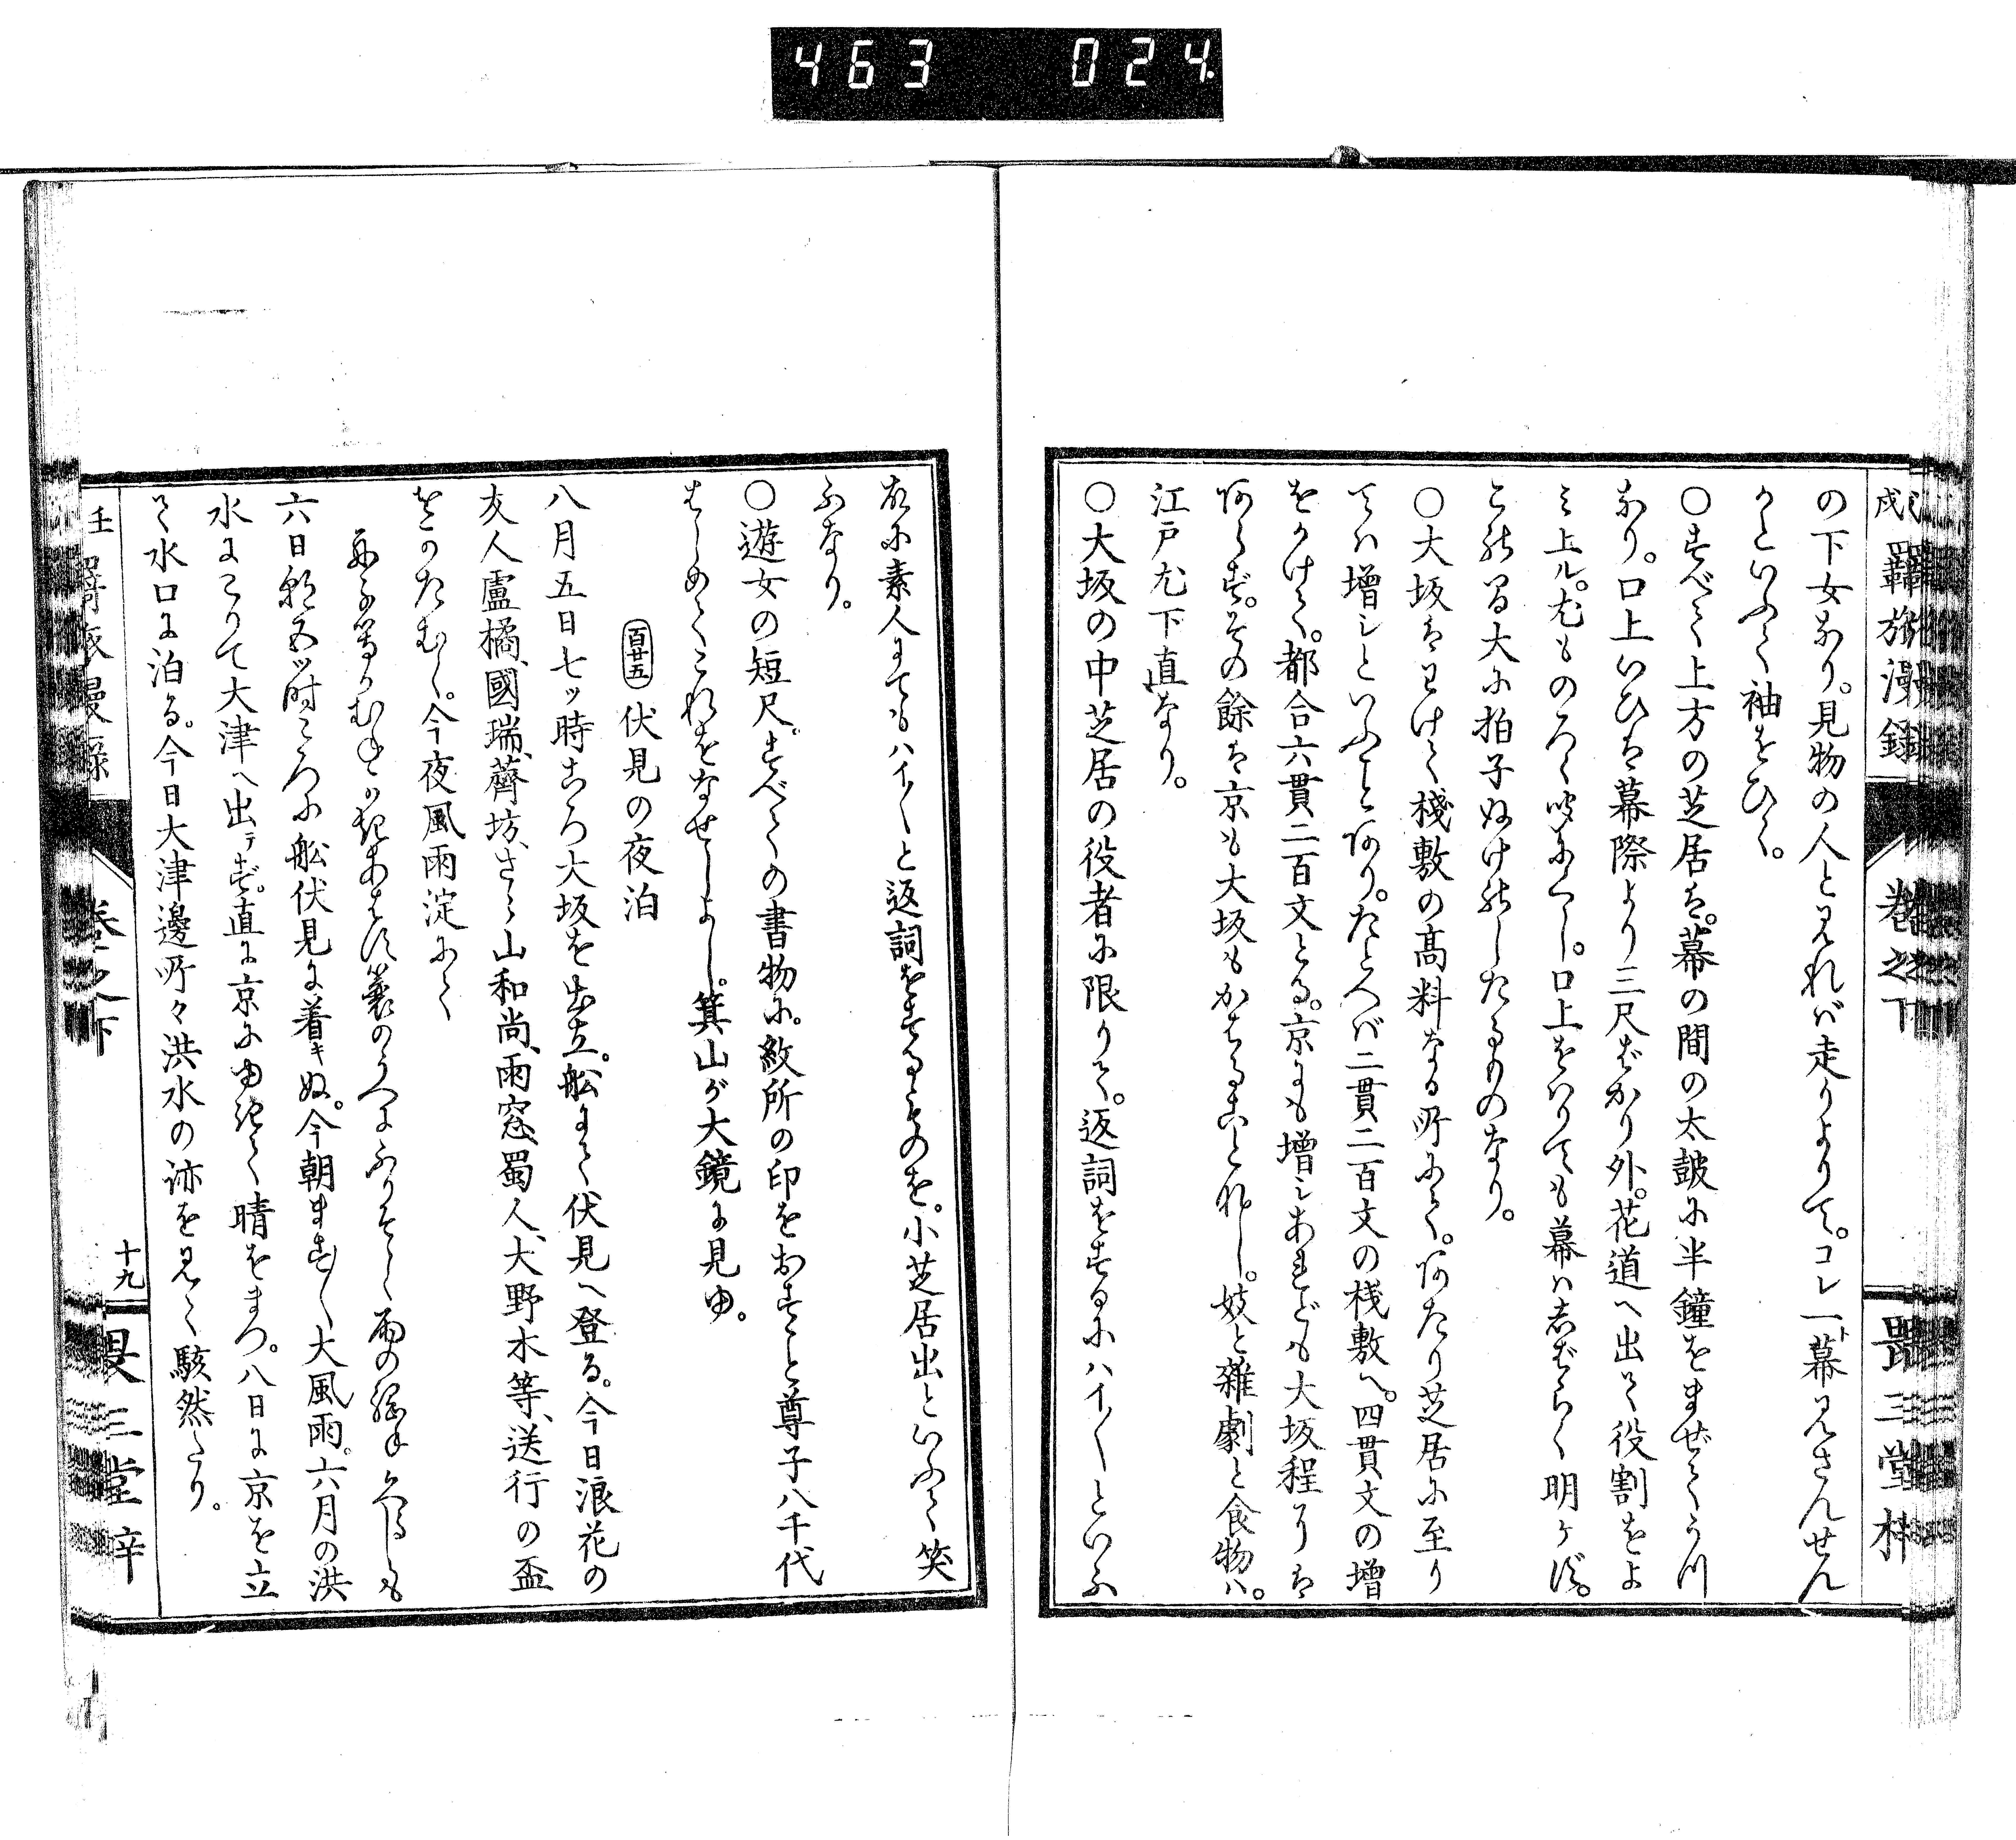 463 024.
戌 羇旅漫録 巻之下 畏三堂梓
の下女なり。見物の人と見れバ走りよりて。コレ一ト幕見さんせん
かといふて袖をひく。
○すべて上方の芝居は。幕の間の太皷に半鐘をまぜてうつ
なり。口上いひは幕際より三尺ばかり外。花道へ出て役割をよ
ミ上ル。尤ものろく咬にくし。口上をはりても幕ハしばらく明ケず。
これゆゑ大に拍子ぬけのしたるものなり。
○大坂はわけて棧敷の高料なる所にて。あたり芝居に至り
てハ増シといふことあり。たとへバ二貫二百文の棧敷へ。四貫文の増
をかけて。都合六貫二百文とる。京にも増シあれども大坂程には
あらず。その餘は京も大坂もかはることなし。妓と雜劇と食物ハ。
江戸尤下直なり。
○大坂の中芝居の役者に限りて。返詞をするにハイ〳〵といふ
故に素人にてもハイ〳〵と返詞をするものを。小芝居出といふて笑
ふなり。
○遊女の短尺。すべての書物に。紋所の印をおすこと尊子八千代
はじめてこれをなせしよし。箕山が大鏡に見ゆ。
百廿五 伏見の夜泊
八月五日七ッ時ごろ大坂を出立。舩にて伏見へ登る。今日浪花の
友人盧橘、國瑞、薺坊、さゝ山和尚、雨窓、蜀人、大野木等、送行の盃
をかたむく。今夜風雨淀にて
六日朝五ッ時ころに舩伏見に着キぬ。今朝ます〳〵大風雨。六月の洪
水にこりて大津へ出テず。直に京にゆきて晴をまつ。八日に京を立
て水口に泊る。今日大津邊所々洪水の迹を見て駭然たり。
壬 羇旅漫録 巻之下 十九 畏三堂梓